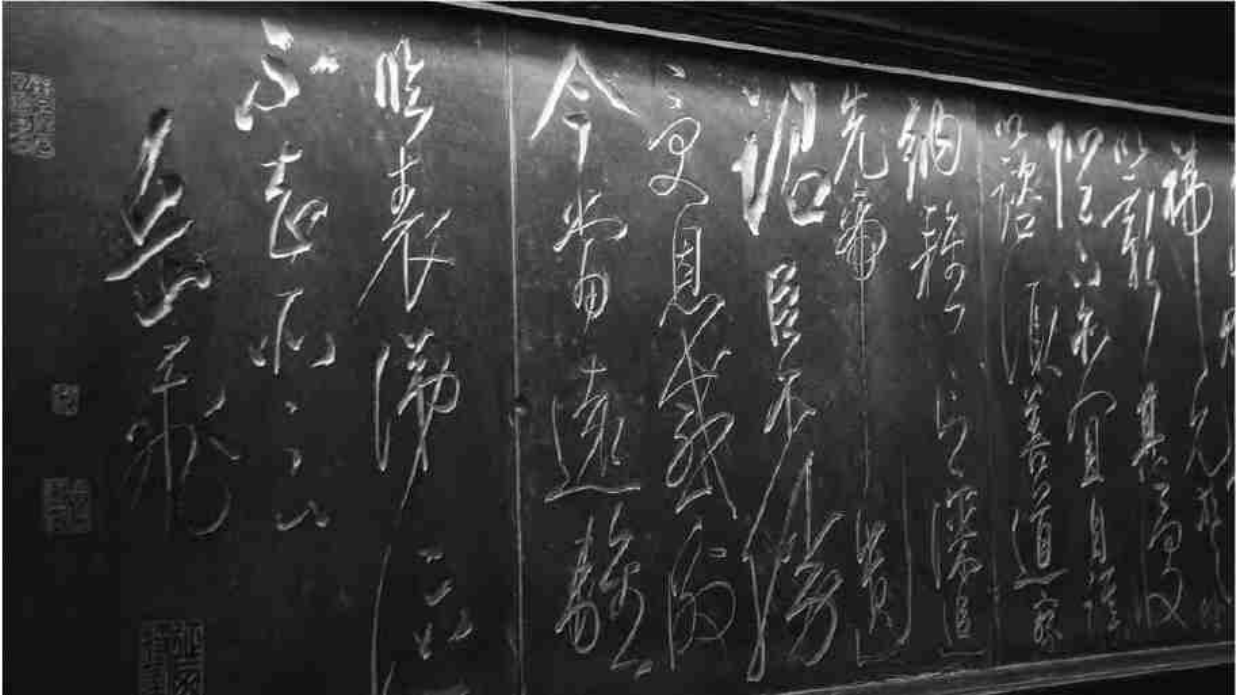 禕允等之咎
以彰其慢
陛下亦宜自謀
以諮諏善道察
納雅言深追
先帝遺
詔臣不勝
受恩感激
今當遠離
臨表涕泣
不知所云
岳飛